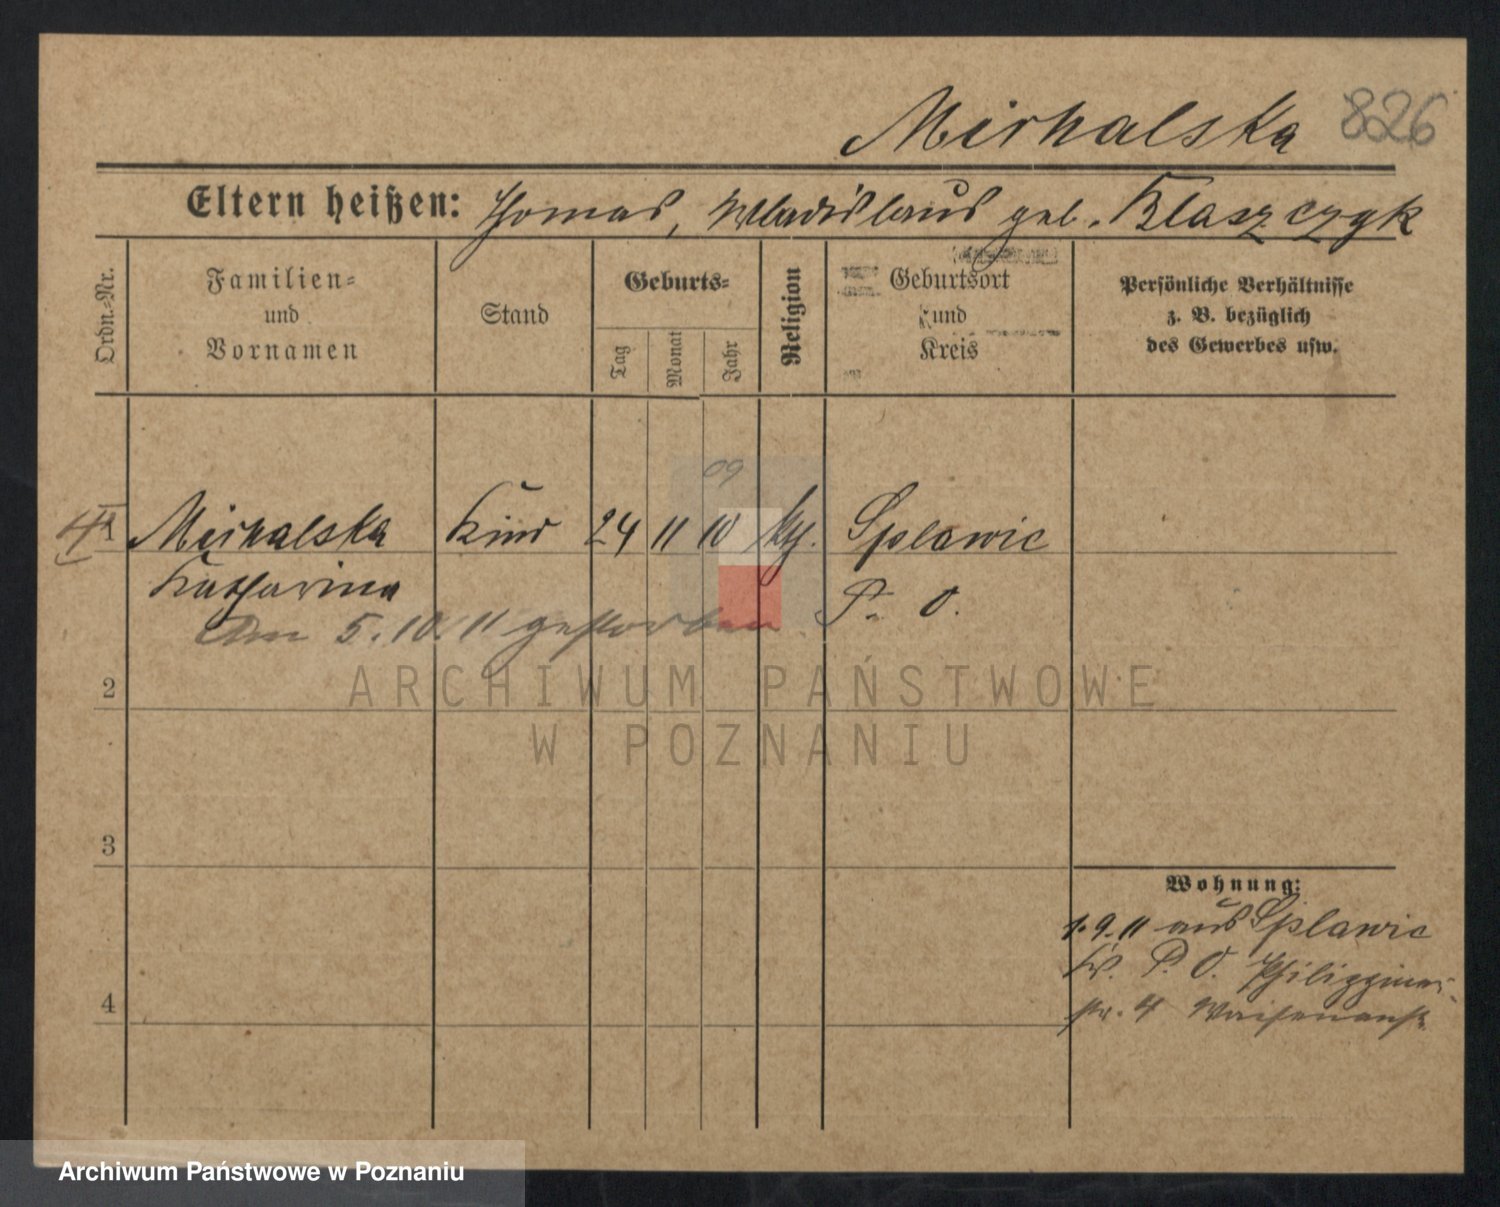 Michalska 826
Eltern heißen: Thomas, Wladislaus geb. Blaszczyk
Ordn.-Nr.
Familien-
und
Vornamen
Stand
Geburts-
Tag
Monat
Jahr
Religion
Geburtsort
und
Kreis
Persönliche Verhältnisse
z. B. bezüglich
des Gewerbes usw.
09
Michalska Kind 24 11 10 kth. Splawie
Katharina P. O.
Am 5.10.11 gestorben
2
3
4
Wohnung:
1.9.11 aus Splawie
Kr. P. O. Philippiner
str. 4 Waisenanst
ARCHIWUM PAŃSTWOWE
W POZNANIU
Archiwum Państwowe w Poznaniu